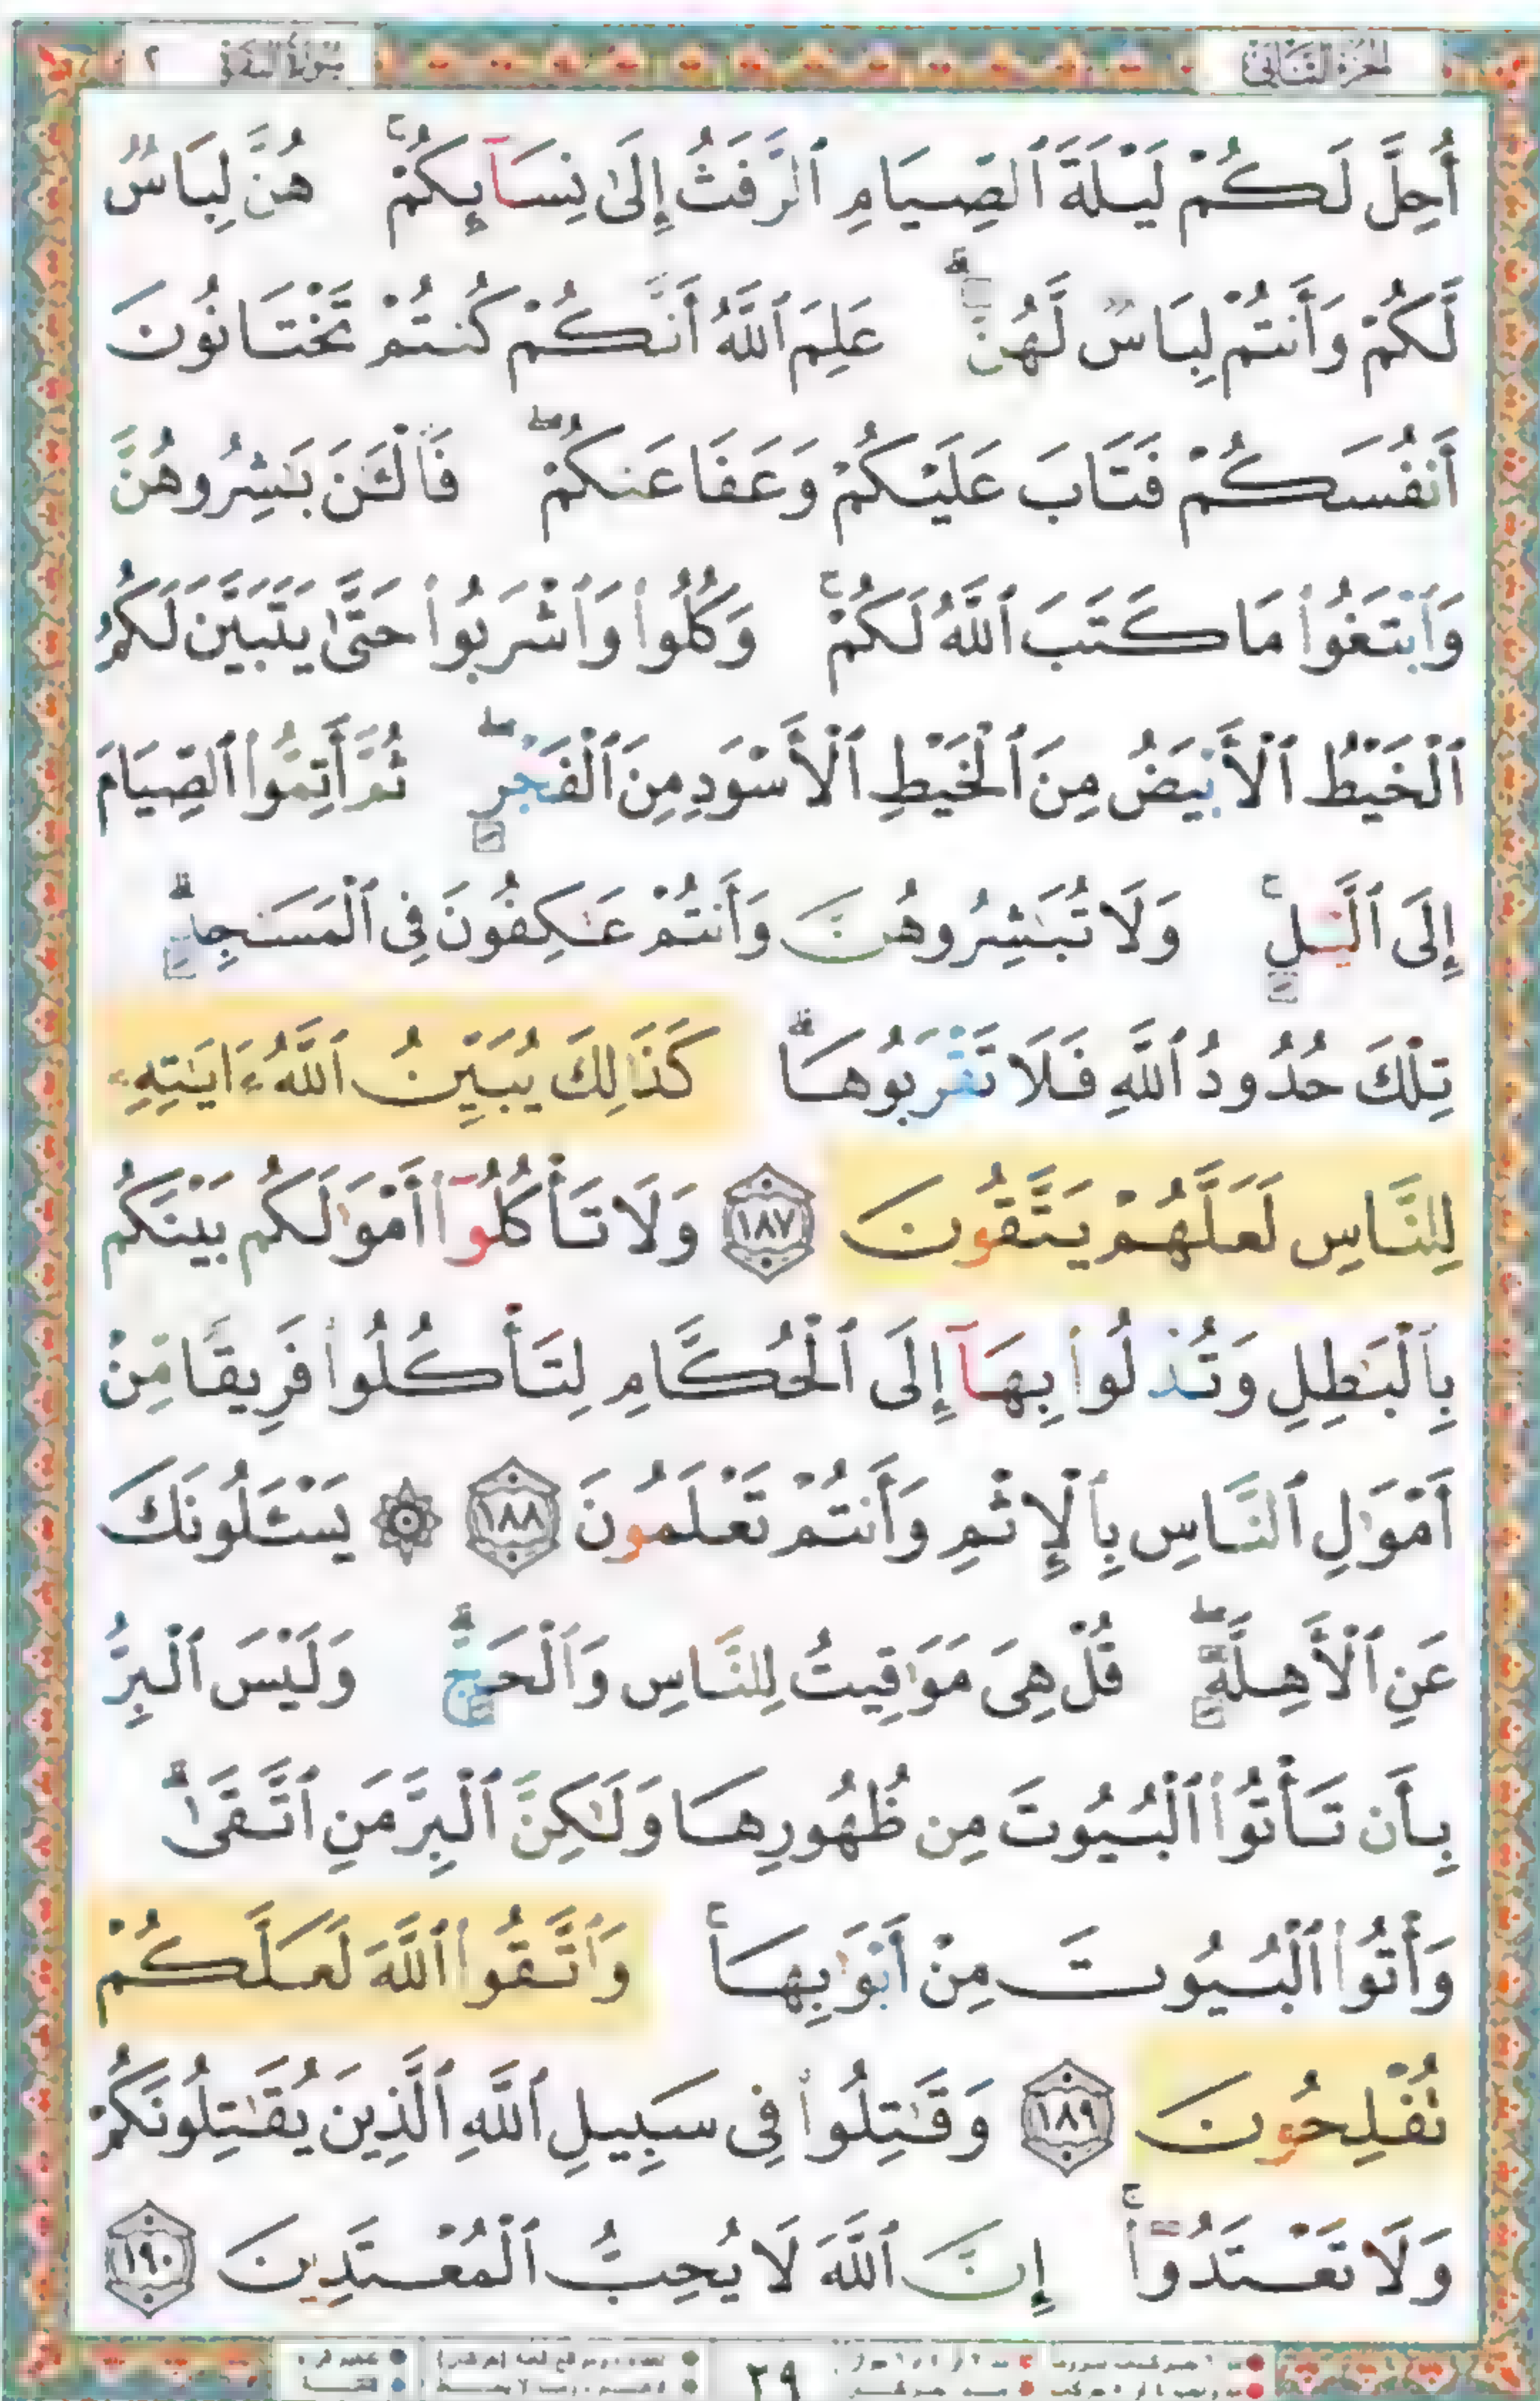 سورة البقرة ٢
الجزء الثاني
أُحِلَّ لَكُمْ لَيْلَةَ ٱلصِّيَامِ ٱلرَّفَثُ إِلَىٰ نِسَآئِكُمْ ۚ هُنَّ لِبَاسٌ
لَّكُمْ وَأَنتُمْ لِبَاسٌ لَّهُنَّ ۗ عَلِمَ ٱللَّهُ أَنَّكُمْ كُنتُمْ تَخْتَانُونَ
أَنفُسَكُمْ فَتَابَ عَلَيْكُمْ وَعَفَا عَنكُمْ ۖ فَٱلْـَٰٔنَ بَـٰشِرُوهُنَّ
وَٱبْتَغُوا۟ مَا كَتَبَ ٱللَّهُ لَكُمْ ۚ وَكُلُوا۟ وَٱشْرَبُوا۟ حَتَّىٰ يَتَبَيَّنَ لَكُمُ
ٱلْخَيْطُ ٱلْأَبْيَضُ مِنَ ٱلْخَيْطِ ٱلْأَسْوَدِ مِنَ ٱلْفَجْرِ ۖ ثُمَّ أَتِمُّوا۟ ٱلصِّيَامَ
إِلَى ٱلَّيْلِ ۚ وَلَا تُبَـٰشِرُوهُنَّ وَأَنتُمْ عَـٰكِفُونَ فِى ٱلْمَسَـٰجِدِ ۗ
تِلْكَ حُدُودُ ٱللَّهِ فَلَا تَقْرَبُوهَا ۗ كَذَٰلِكَ يُبَيِّنُ ٱللَّهُ ءَايَـٰتِهِۦ
لِلنَّاسِ لَعَلَّهُمْ يَتَّقُونَ ١٨٧ وَلَا تَأْكُلُوٓا۟ أَمْوَٰلَكُم بَيْنَكُم
بِٱلْبَـٰطِلِ وَتُدْلُوا۟ بِهَآ إِلَى ٱلْحُكَّامِ لِتَأْكُلُوا۟ فَرِيقًا مِّنْ
أَمْوَٰلِ ٱلنَّاسِ بِٱلْإِثْمِ وَأَنتُمْ تَعْلَمُونَ ١٨٨ ۞ يَسْـَٔلُونَكَ
عَنِ ٱلْأَهِلَّةِ ۖ قُلْ هِىَ مَوَٰقِيتُ لِلنَّاسِ وَٱلْحَجِّ ۗ وَلَيْسَ ٱلْبِرُّ
بِأَن تَأْتُوا۟ ٱلْبُيُوتَ مِن ظُهُورِهَا وَلَـٰكِنَّ ٱلْبِرَّ مَنِ ٱتَّقَىٰ ۗ
وَأْتُوا۟ ٱلْبُيُوتَ مِنْ أَبْوَٰبِهَا ۚ وَٱتَّقُوا۟ ٱللَّهَ لَعَلَّكُمْ
تُفْلِحُونَ ١٨٩ وَقَـٰتِلُوا۟ فِى سَبِيلِ ٱللَّهِ ٱلَّذِينَ يُقَـٰتِلُونَكُمْ
وَلَا تَعْتَدُوٓا۟ ۚ إِنَّ ٱللَّهَ لَا يُحِبُّ ٱلْمُعْتَدِينَ ١٩٠
٢٩